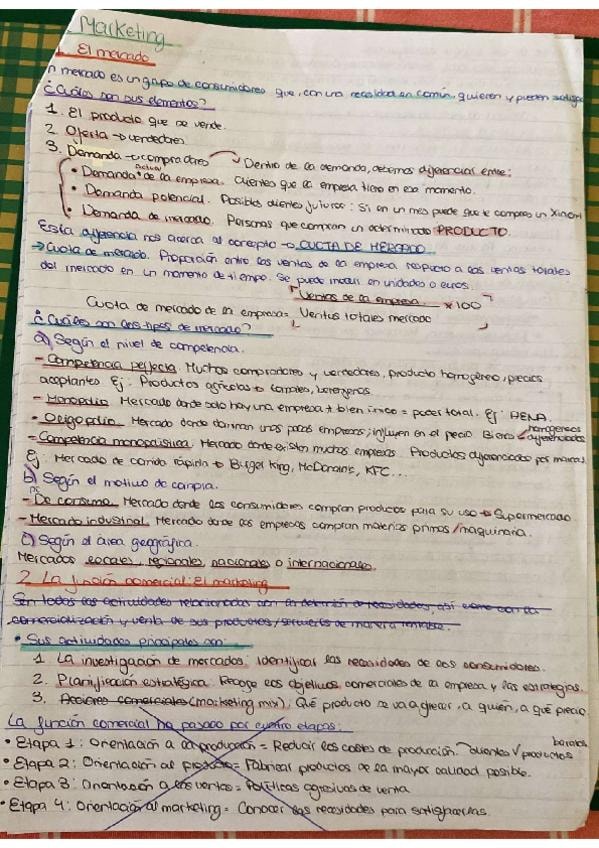 Marketing
1. El mercado
n mercado es un grupo de consumidores que, con una necesidad en común, quieren y pueden satisfa
¿Cuáles son sus elementos?
1. El producto que se vende.
2. Oferta → vendedores
3. Demanda → compradores → Dentro de la demanda, debemos diferenciar entre:
• Demanda actual de la empresa. Clientes que la empresa tiene en ese momento.
• Demanda potencial. Posibles clientes futuros: Si en un mes puede que te compres un Xiaomi
• Demanda de mercado. Personas que compran un determinado PRODUCTO.
Esta diferencia nos acerca al concepto → CUOTA DE MERCADO
→ Cuota de mercado. Proporción entre las ventas de la empresa respecto a las ventas totales
del mercado en un momento de tiempo. Se puede medir en unidades o euros.
Cuota de mercado de la empresa = [Ventas de la empresa / Ventas totales mercado × 100]
¿Cuáles son los tipos de mercado?
a) Según el nivel de competencia.
- Competencia perfecta. Muchos compradores y vendedores, producto homogéneo, precios
aceptantes Ej: Productos agrícolas → tomates, berenjenas
- Monopolio. Mercado donde solo hay una empresa + bien único = poder total. Ej: AENA.
- Oligopolio. Mercado donde dominan unas pocas empresas; influyen en el precio Bienes < homogéneos diferenciados
- Competencia monopolística. Mercado donde existen muchas empresas. Productos diferenciados por marcas.
Ej: Mercado de comida rápida → Burger King, McDonald's, KFC...
b) Según el motivo de compra.
- De consumo. Mercado donde los consumidores compran productos para su uso → Supermercado
- Mercado industrial. Mercado donde las empresas compran materias primas / maquinaria.
c) Según el área geográfica.
Mercados locales, regionales, nacionales o internacionales.
2. La función comercial: El marketing
Son todas las actividades relacionadas con la detención de necesidades, así como con la
comercialización y venta de sus productos / servicios de manera rentable.
• Sus actividades principales son:
1. La investigación de mercados. Identificar las necesidades de los consumidores.
2. Planificación estratégica. Recoge los objetivos comerciales de la empresa y las estrategias.
3. Acciones comerciales (marketing mix). Qué producto se va a ofrecer, a quién, a qué precio
La función comercial ha pasado por cuatro etapas:
• Etapa 1: Orientación a la producción = Reducir los costes de producción. clientes √ productos baratos
• Etapa 2: Orientación al producto = Fabricar productos de la mayor calidad posible.
• Etapa 3: Orientación a las ventas = Políticas agresivas de venta
• Etapa 4: Orientación al marketing = Conocer las necesidades para satisfacerlas.